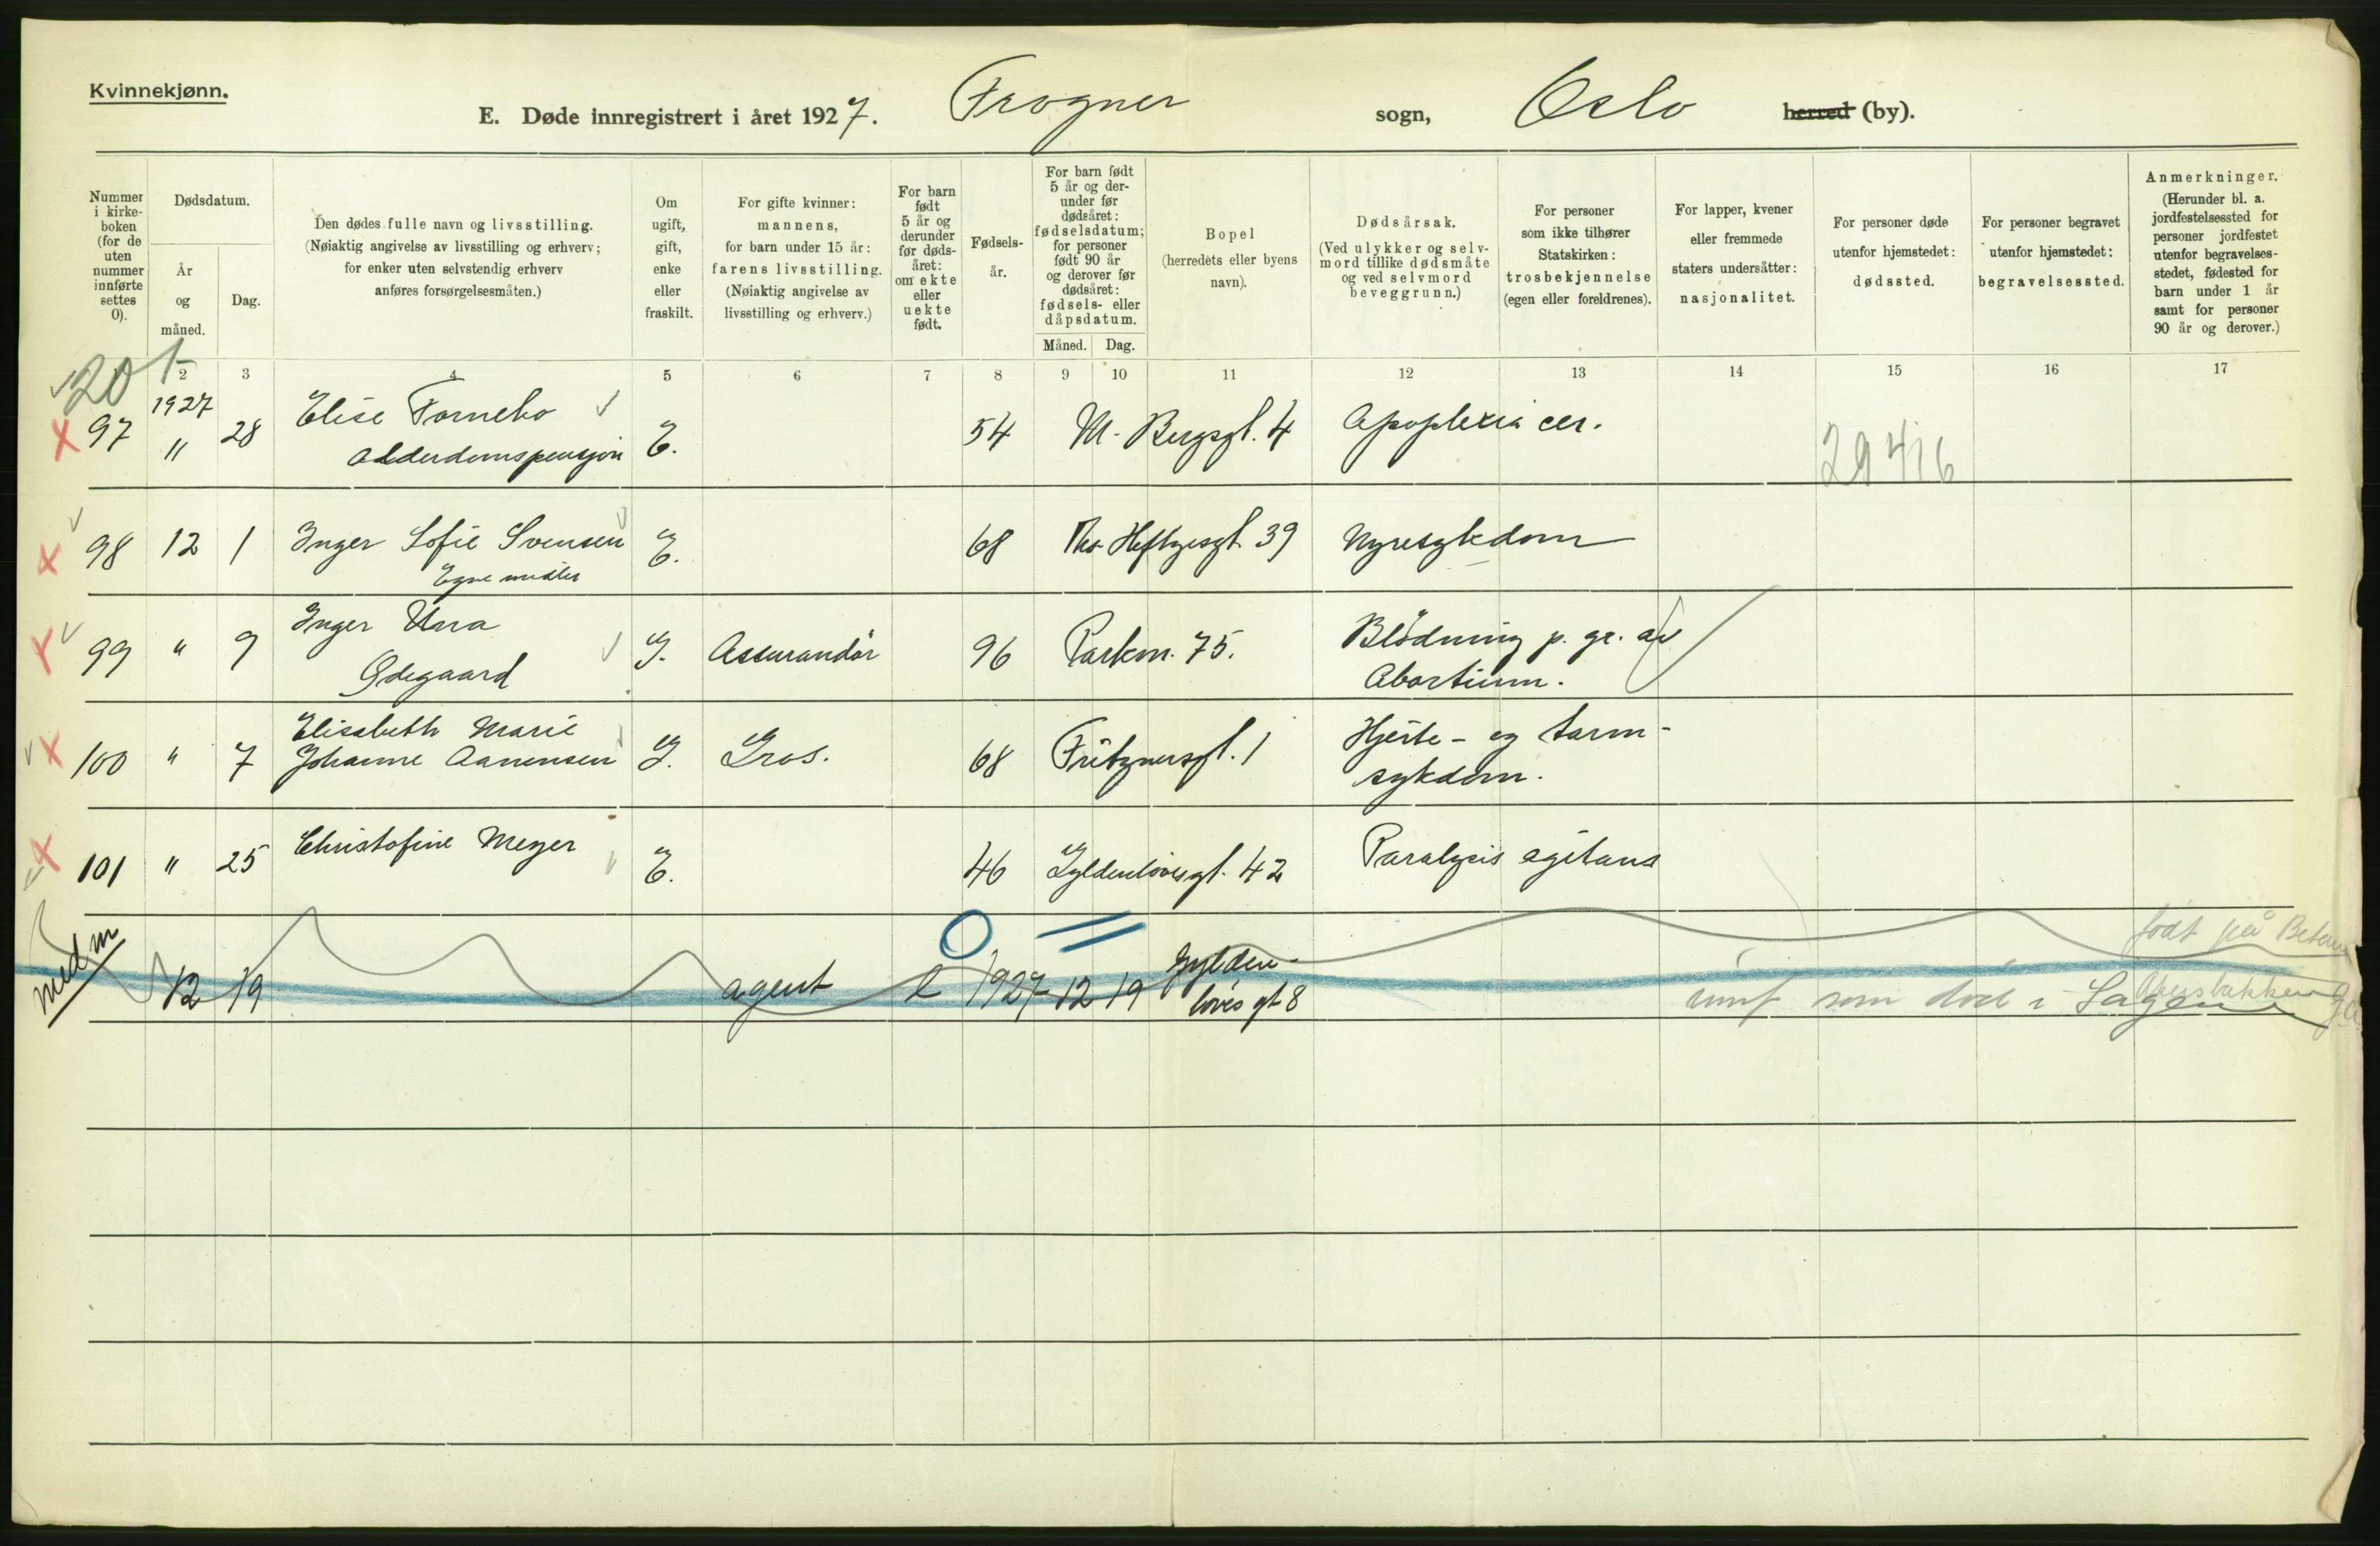 Kvinnekjønn.
E. Døde innregistrert i året 1927. Frogner sogn, Oslo herred (by).
Nummer i kirke-boken (for de uten nummer innførte settes 0).
Dødsdatum.
År og måned.
Dag.
Den dødes fulle navn og livsstilling.
(Nøiaktig angivelse av livsstilling og erhverv;
for enker uten selvstendig erhverv
anføres forsørgelsesmåten.)
Om ugift, gift, enke eller fraskilt.
For gifte kvinner:
mannens,
for barn under 15 år:
farens livsstilling.
(Nøiaktig angivelse av
livsstilling og erhverv.)
For barn født 5 år og derunder før døds-året: om ekte eller uekte født.
Fødsels-år.
For barn født 5 år og der-under før dødsåret: fødselsdatum; for personer født 90 år og derover før dødsåret: fødsels- eller dåpsdatum.
Måned. Dag.
Bopel
(herredets eller byens navn).
Dødsårsak.
(Ved ulykker og selv-mord tillike dødsmåte og ved selvmord beveggrunn.)
For personer som ikke tilhører Statskirken: trosbekjennelse (egen eller foreldrenes).
For lapper, kvener eller fremmede staters undersåtter: nasjonalitet.
For personer døde utenfor hjemstedet: dødssted.
For personer begravet utenfor hjemstedet: begravelsessted.
Anmerkninger.
(Herunder bl. a. jordfestelsessted for personer jordfestet utenfor begravelses-stedet, fødested for barn under 1 år samt for personer 90 år og derover.)
201
2 3 4 5 6 7 8 9 10 11 12 13 14 15 16 17
1927
97 " 28 Elise Fornebo E. 54 M. Bergsgt. 4 Apoplexia cer. 29416
Alderdomspensjon
98 12 1 Inger Sofie Svensen E. 68 Ths. Heftyesgt. 39 Nyresykdom
Egne midler
99 " 9 Inger Una G. Assurandør 96 Parkvn. 75. Blödning p. gr. av
Ødegaard Abortium.
100 " 7 Elisabeth Marie
Johanne Aanensen G. Gros. 68 Fritznersgt. 1 Hjerte- og tarm-
sykdom.
101 " 25 Christofine Meyer E. 46 Gyldenløvesgt. 42 Paralysis agitans
med m 12 19 agent e 1927 12 19 Gylden-
løves gt 8
født på
som død i Sagene